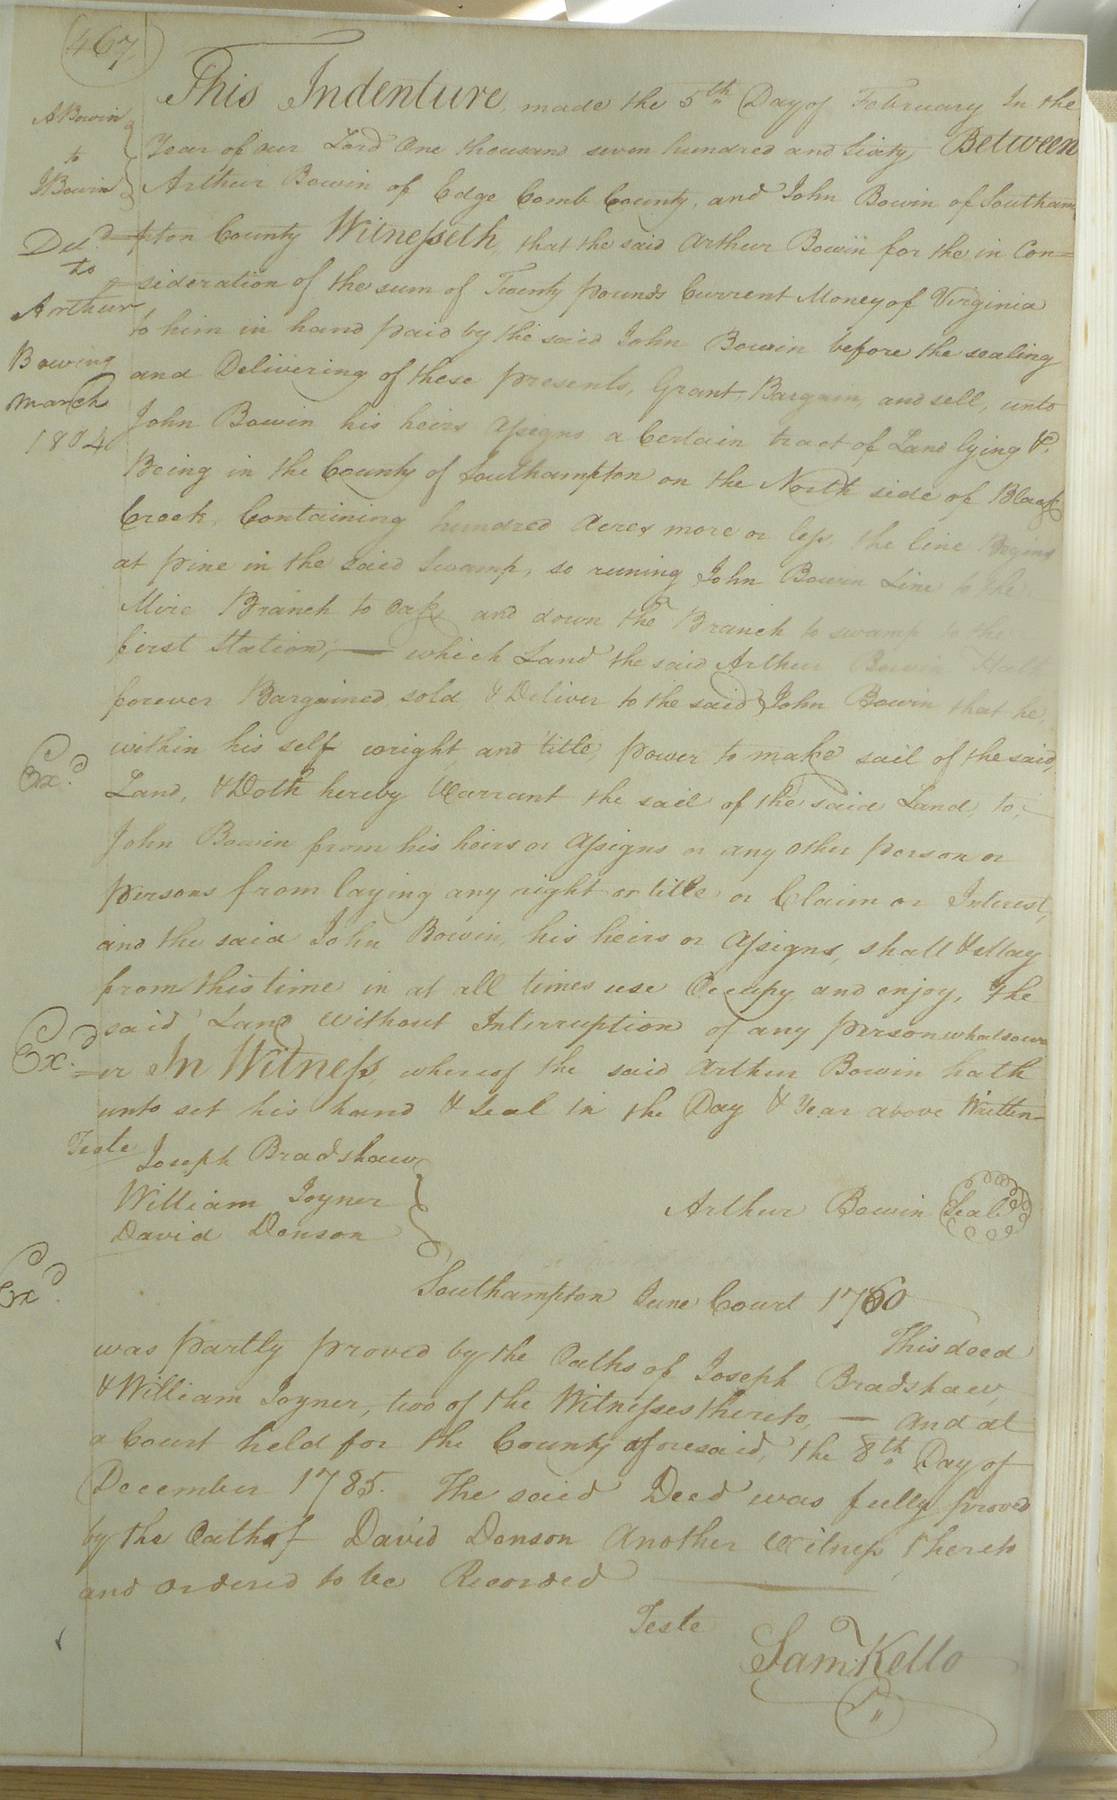 467
A Bowin
to
J Bowin
Deld
to
Arthur
Bowing
March
1804
This Indenture, made the 5th Day of February In the
Year of our Lord One thousand seven hundred and Sixty, Between
Arthur Bowin of Edge Comb County, and John Bowin of Southam
=pton County Witnesseth, that the said Arthur Bowin for the in Con=
=sideration of the sum of Twenty pounds Current Money of Virginia
to him in hand paid by the said John Bowin before the sealing
and Delivering of these presents, Grant Bargain, and sell, unto
John Bowin his heirs Assigns a Certain tract of Land lying &
Being in the County of Southampton on the North side of Black
Creek, Containing hundred Acres more or less, the line Begins
at pine in the said Swamp, so runing John Bowin Line to the
Mire Branch to oak, and down the Branch to swamp to the
first Station; — which Land the said Arthur Bowin Hath
forever Bargained sold & Deliver to the said John Bowin that he,
within his self wright, and title, power to make sail of the said,
Land, & Doth hereby Warrant the sail of the said Land, to,
John Bowin from his heirs or Assigns or any other person or
persons from laying any right or title or Claim or Interest,
and the said John Bowin, his heirs or Assigns, shall & May
from this time in at all times use Occupy and enjoy, The
said Land without Interruption of any person whatsoev
=er In Witness, whereof the said Arthur Bowin hath
unto set his hand & Seal in the Day & Year above Written
Exd
Exd
Exd
Teste Joseph Bradshaw
William Joyner
David Donson
Arthur Bowin Seal
Southampton June Court 1760
This deed
was partly proved by the Oaths of Joseph Bradshaw,
& William Joyner, two of the Witnesses thereto, — And at
a Court held for the County aforesaid, the 8th Day of
December 1785. The said Deed was fully proved
by the Oath of David Donson Another Witness, thereto
and ordered to be Recorded
Teste
Saml Kello